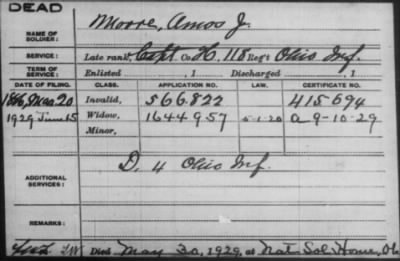 DEAD
NAME OF SOLDIER: Moore, Amos J.
SERVICE: Late rank, Capt Co. H, 118 Reg't Ohio Inf.
TERM OF SERVICE: Enlisted , 1 Discharged , 1
DATE OF FILING. CLASS. APPLICATION NO. LAW. CERTIFICATE NO.
1886, Mar 20 Invalid, 566.822 415.694
1929 June 15 Widow, 1644957 5-1-20 a 9-10-29
Minor,
ADDITIONAL SERVICES: D. 4 Ohio Inf.
REMARKS:
Died May 30, 1929, at Nat Sol Home, O